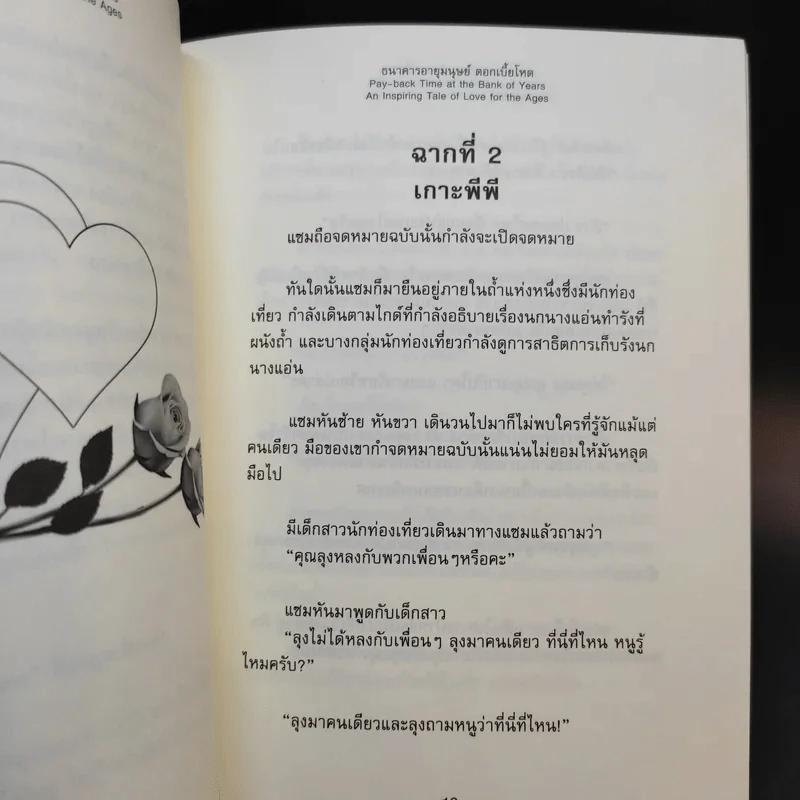 the Ages
ธนาคารอายุมนุษย์ ดอกเบี้ยโหด
Pay-back Time at the Bank of Years
An Inspiring Tale of Love for the Ages
ฉากที่ 2
เกาะพีพี
แซมถือจดหมายฉบับนั้นกำลังจะเปิดจดหมาย
ทันใดนั้นแซมก็มายืนอยู่ภายในถ้ำแห่งหนึ่งซึ่งมีนักท่อง
เที่ยว กำลังเดินตามไกด์ที่กำลังอธิบายเรื่องนกนางแอ่นทำรังที่
ผนังถ้ำ และบางกลุ่มนักท่องเที่ยวกำลังดูการสาธิตการเก็บรังนก
นางแอ่น
แซมหันซ้าย หันขวา เดินวนไปมาก็ไม่พบใครที่รู้จักแม้แต่
คนเดียว มือของเขากำจดหมายฉบับนั้นแน่นไม่ยอมให้มันหลุด
มือไป
มีเด็กสาวนักท่องเที่ยวเดินมาทางแซมแล้วถามว่า
“คุณลุงหลงกับพวกเพื่อนๆหรือคะ”
แซมหันมาพูดกับเด็กสาว
“ลุงไม่ได้หลงกับเพื่อนๆ ลุงมาคนเดียว ที่นี่ที่ไหน หนูรู้
ไหมครับ?”
“ลุงมาคนเดียวและลุงถามหนูว่าที่นี่ที่ไหน!”